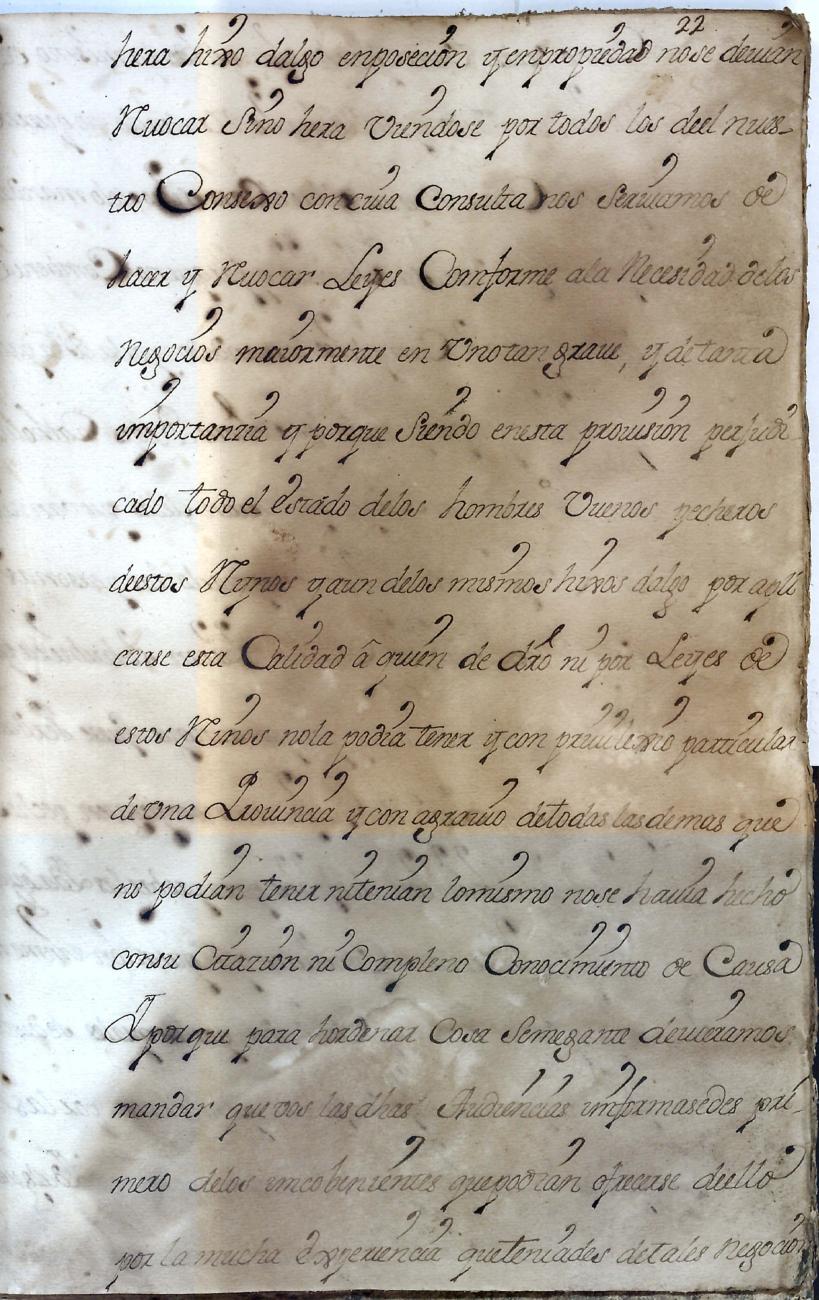 22
hera hixo dalgo enposeción y enpropiedad nose devian
Nuocar Sino hera Viendose por todos los deel nues-
tro Consexo con cuia Consulta nos Serviamos de
hacer y Nuocar Leyes Comforme ala Necesidad delos
Negocios maiormente en Vno tan grave, y de tanta
importanzia y porque Siendo enesta provision perjudi
cado todo el estado delos hombres Vuenos pecheros
deestos Rynos y aun delos mismos hixos dalgo por apli
carse esta Calidad â quien de dro ni por Leyes de
estos Rinos nola podia tener y con privilexio particular
de vna Provincia y con agravio detodas las demas que
no podian tener nitenian lomismo nose havia hecho
consu Citazion ni Compleno Conocimiento de Causa
Y porque para hordenar Cosa Semegante devieramos
mandar que vos las dhas Audiencias imformasedes pri-
mero delos imcobenientes que podian ofrecerse deello
por la mucha experiencia queteniades detales negocios